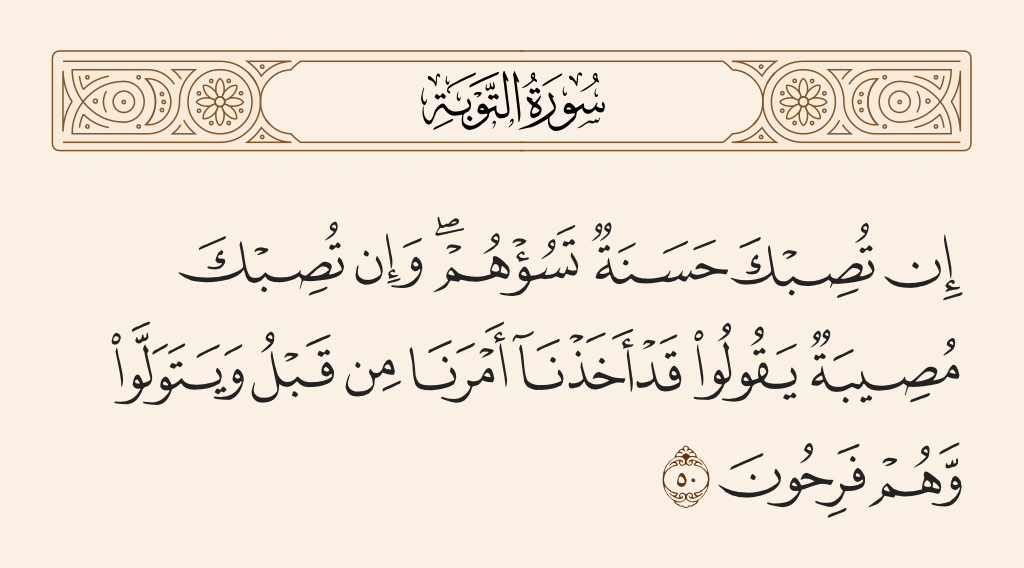 سُورَةُ التَّوۡبَةِ
إِن تُصِبۡكَ حَسَنَةٞ تَسُؤۡهُمۡۖ وَإِن تُصِبۡكَ
مُصِيبَةٞ يَقُولُواْ قَدۡ أَخَذۡنَآ أَمۡرَنَا مِن قَبۡلُ وَيَتَوَلَّواْ
وَّهُمۡ فَرِحُونَ ٥٠